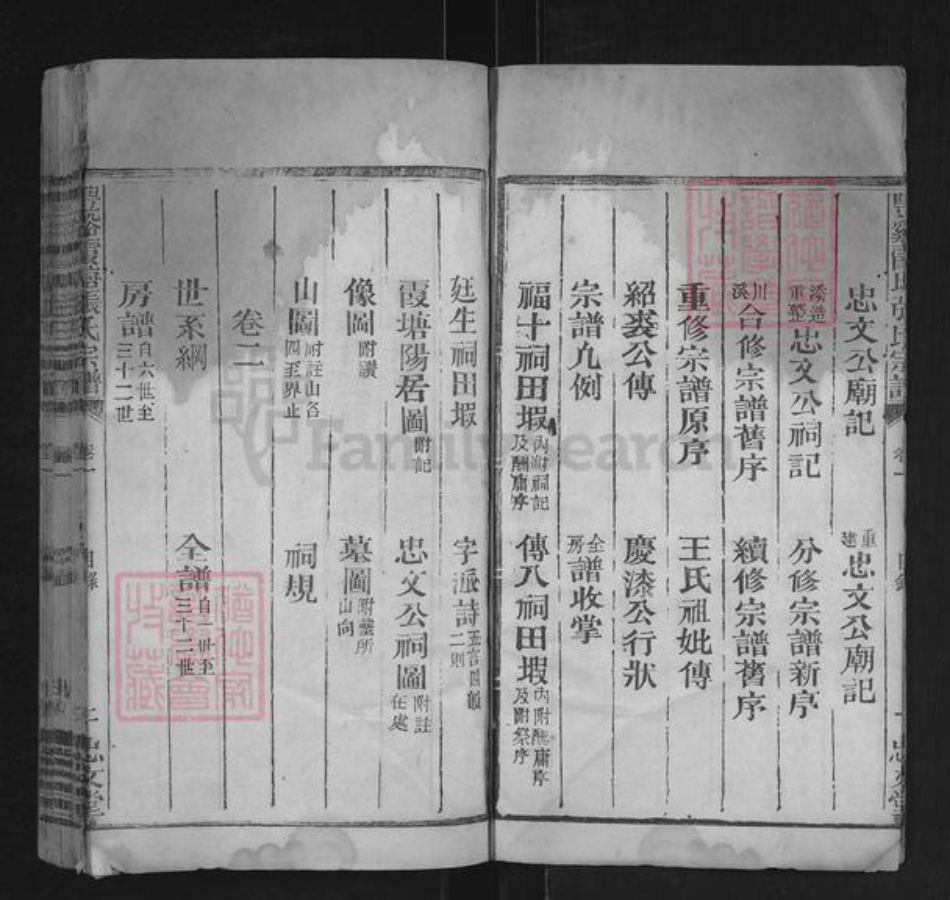 忠文公廟記 重建忠文公廟記
添造重整忠文公祠記 分修宗譜新序
川溪合修宗譜舊序 續修宗譜舊序
重修宗譜原序 王氏祖妣傳
紹裘公傳 慶漆公行狀
宗譜凡例 全房譜收掌
福十祠田嘏內附祠記及酬庸序 傳八祠田嘏內附酬庸序及附祭序
廷生祠田嘏 字派詩五言四韻二則
霞塘陽居圖附記 忠文公祠圖附註在處
像圖附讚 墓圖附塋所山向
山圖附註山名四至界止 祠規
卷二
世系綱 全譜自一世至三十二世
房譜自六世至三十二世
張氏宗譜 卷一 目錄 二 忠文堂
FamilySearch